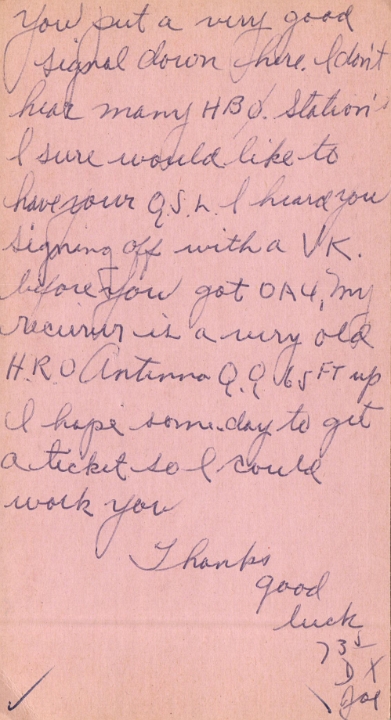 You put a very good
signal down here. I don't
hear many HBØ. Station's
I sure would like to
have your Q.S.L. I heard you
signing off with a VK.
before you got OA4, my
reciever is a very old
H.R.O Antenna Q.Q 65 FT up
I hope some.day to get
a ticket so I could
work you
Thanks
good
luck
73s
DX
Joe